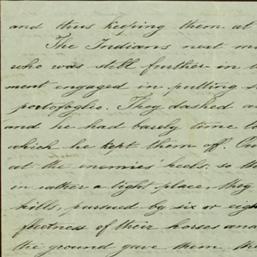 and thus keeping them at
The Indians next m
who was still further in t
ment engaged in putting s
portofoglio. They dashed a
and he had barely time to
which he kept them off. Un
at the enemies' heels, so th
in rather a tight place, they
hills, pursued by six or eigh
fleetness of their horses and
the ground gave them, the